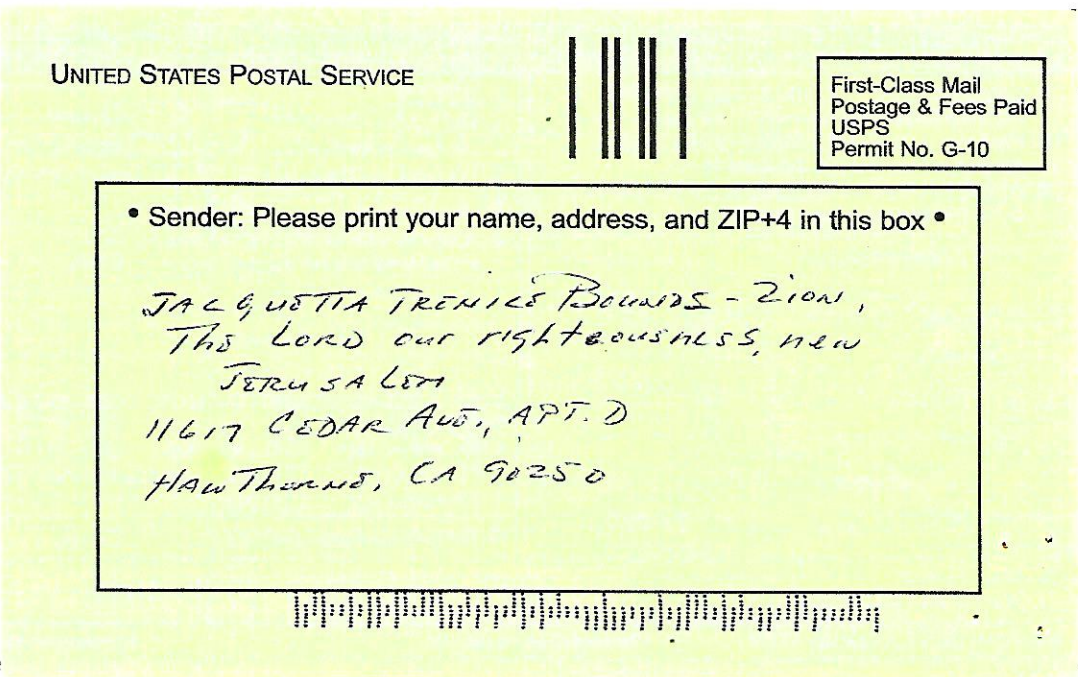 UNITED STATES POSTAL SERVICE
First-Class Mail
Postage & Fees Paid
USPS
Permit No. G-10
• Sender: Please print your name, address, and ZIP+4 in this box •
JACQUETTA TRENICE BOUNDS - ZION,
The LORD our righteousness, new
JERUSALEM
11617 CEDAR AVE., APT. D
HAWThorne, CA 90250